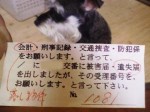 会計・刑事記録・交通捜査・防犯係
をお願いします。と言って、
に交番に拾得届・遺失届
を出しましたが、その受理番号を
お願いします。と言って下さい。
No. 108